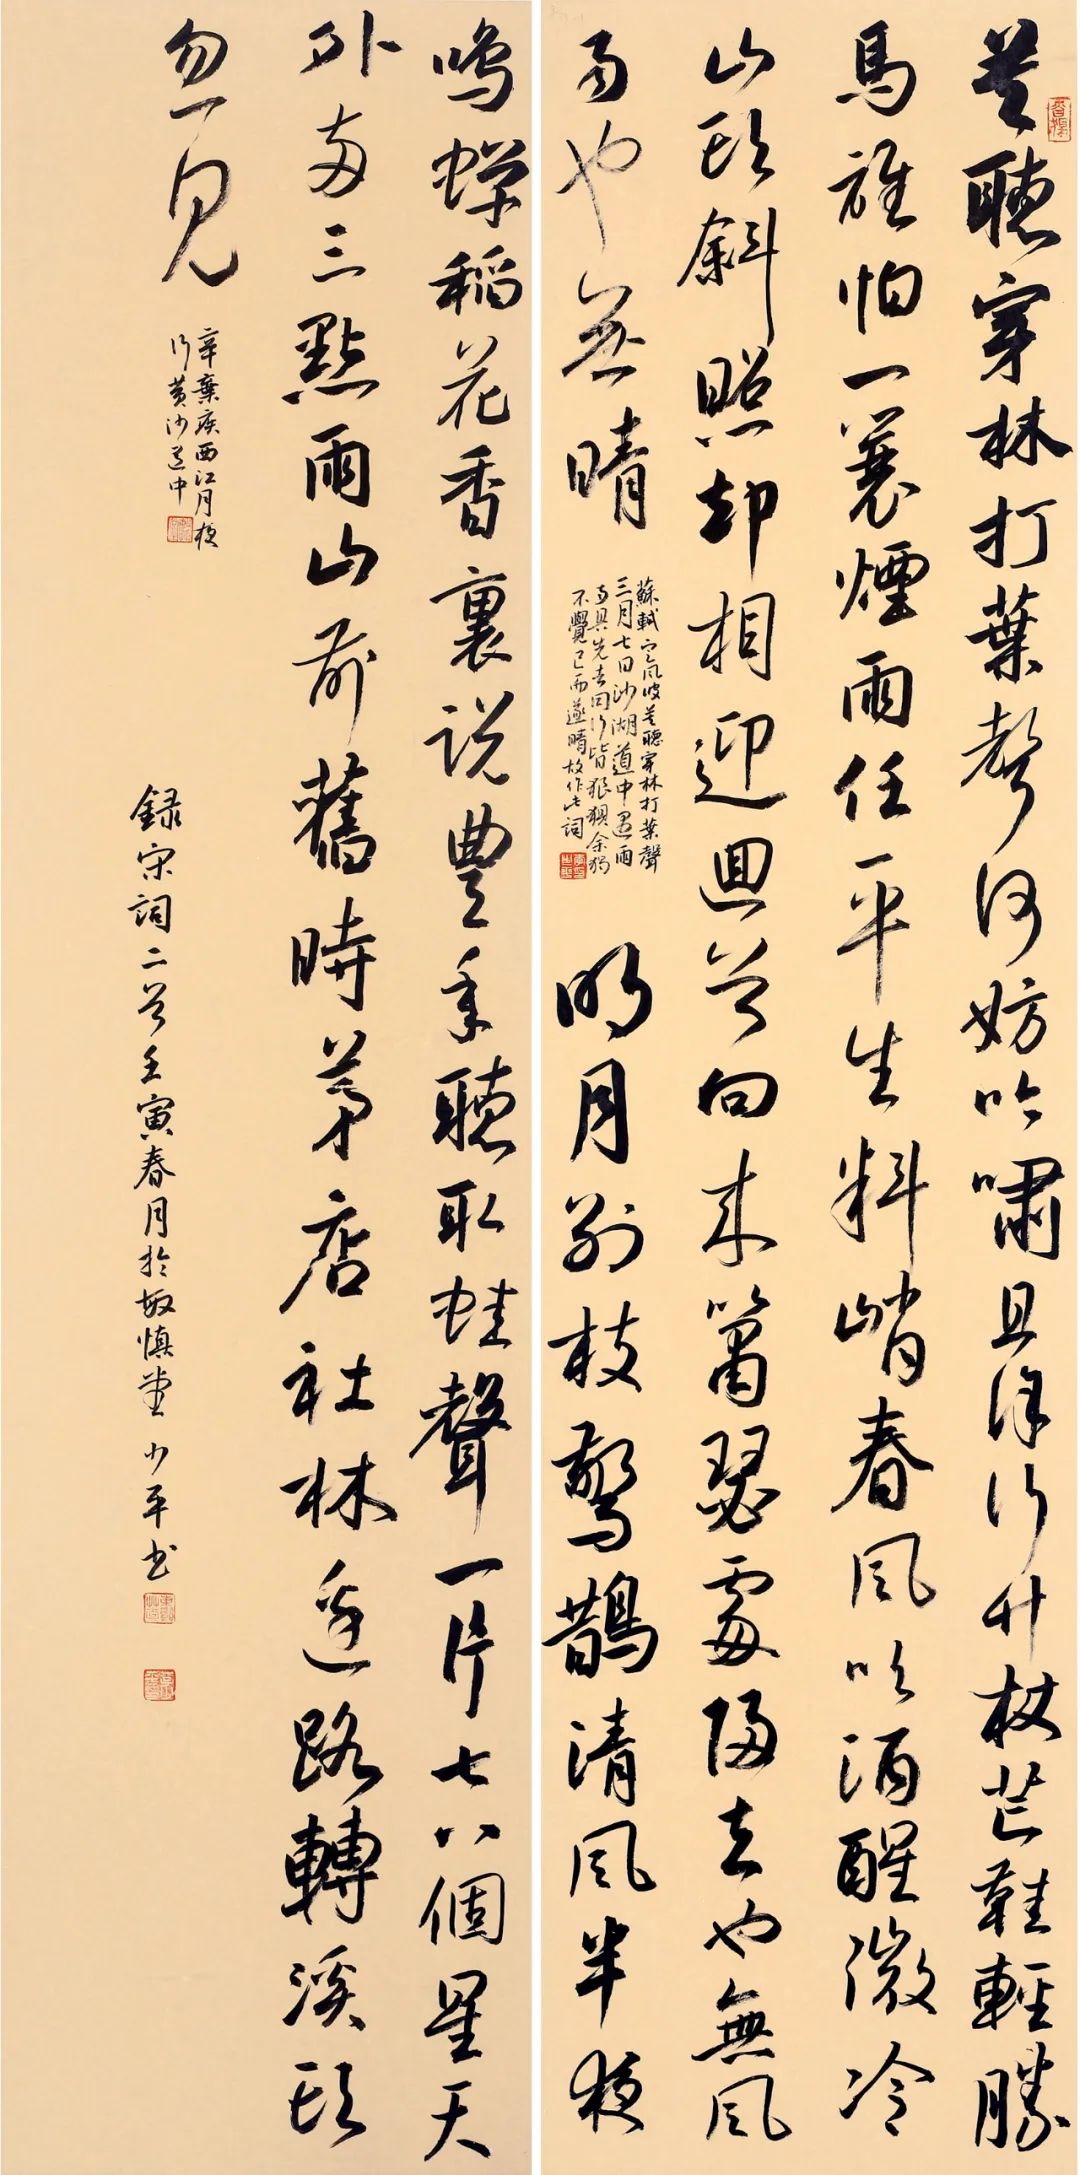 莫聽穿林打葉聲何妨吟嘯且徐行竹杖芒鞋輕勝
馬誰怕一蓑煙雨任平生料峭春風吹酒醒微冷
山頭斜照却相迎回首向來蕭瑟處歸去也無風
雨也無晴
蘇軾定風波莫聽穿林打葉聲
三月七日沙湖道中遇雨
雨具先去同行皆狼狽余獨
不覺已而遂晴故作此詞
明月別枝驚鵲清風半夜
鳴蟬稻花香裏說豐年聽取蛙聲一片七八個星天
外兩三點雨山前舊時茅店社林邊路轉溪頭
忽見
辛棄疾西江月夜
行黃沙道中
録宋詞二首壬寅春月於敏慎堂少平書